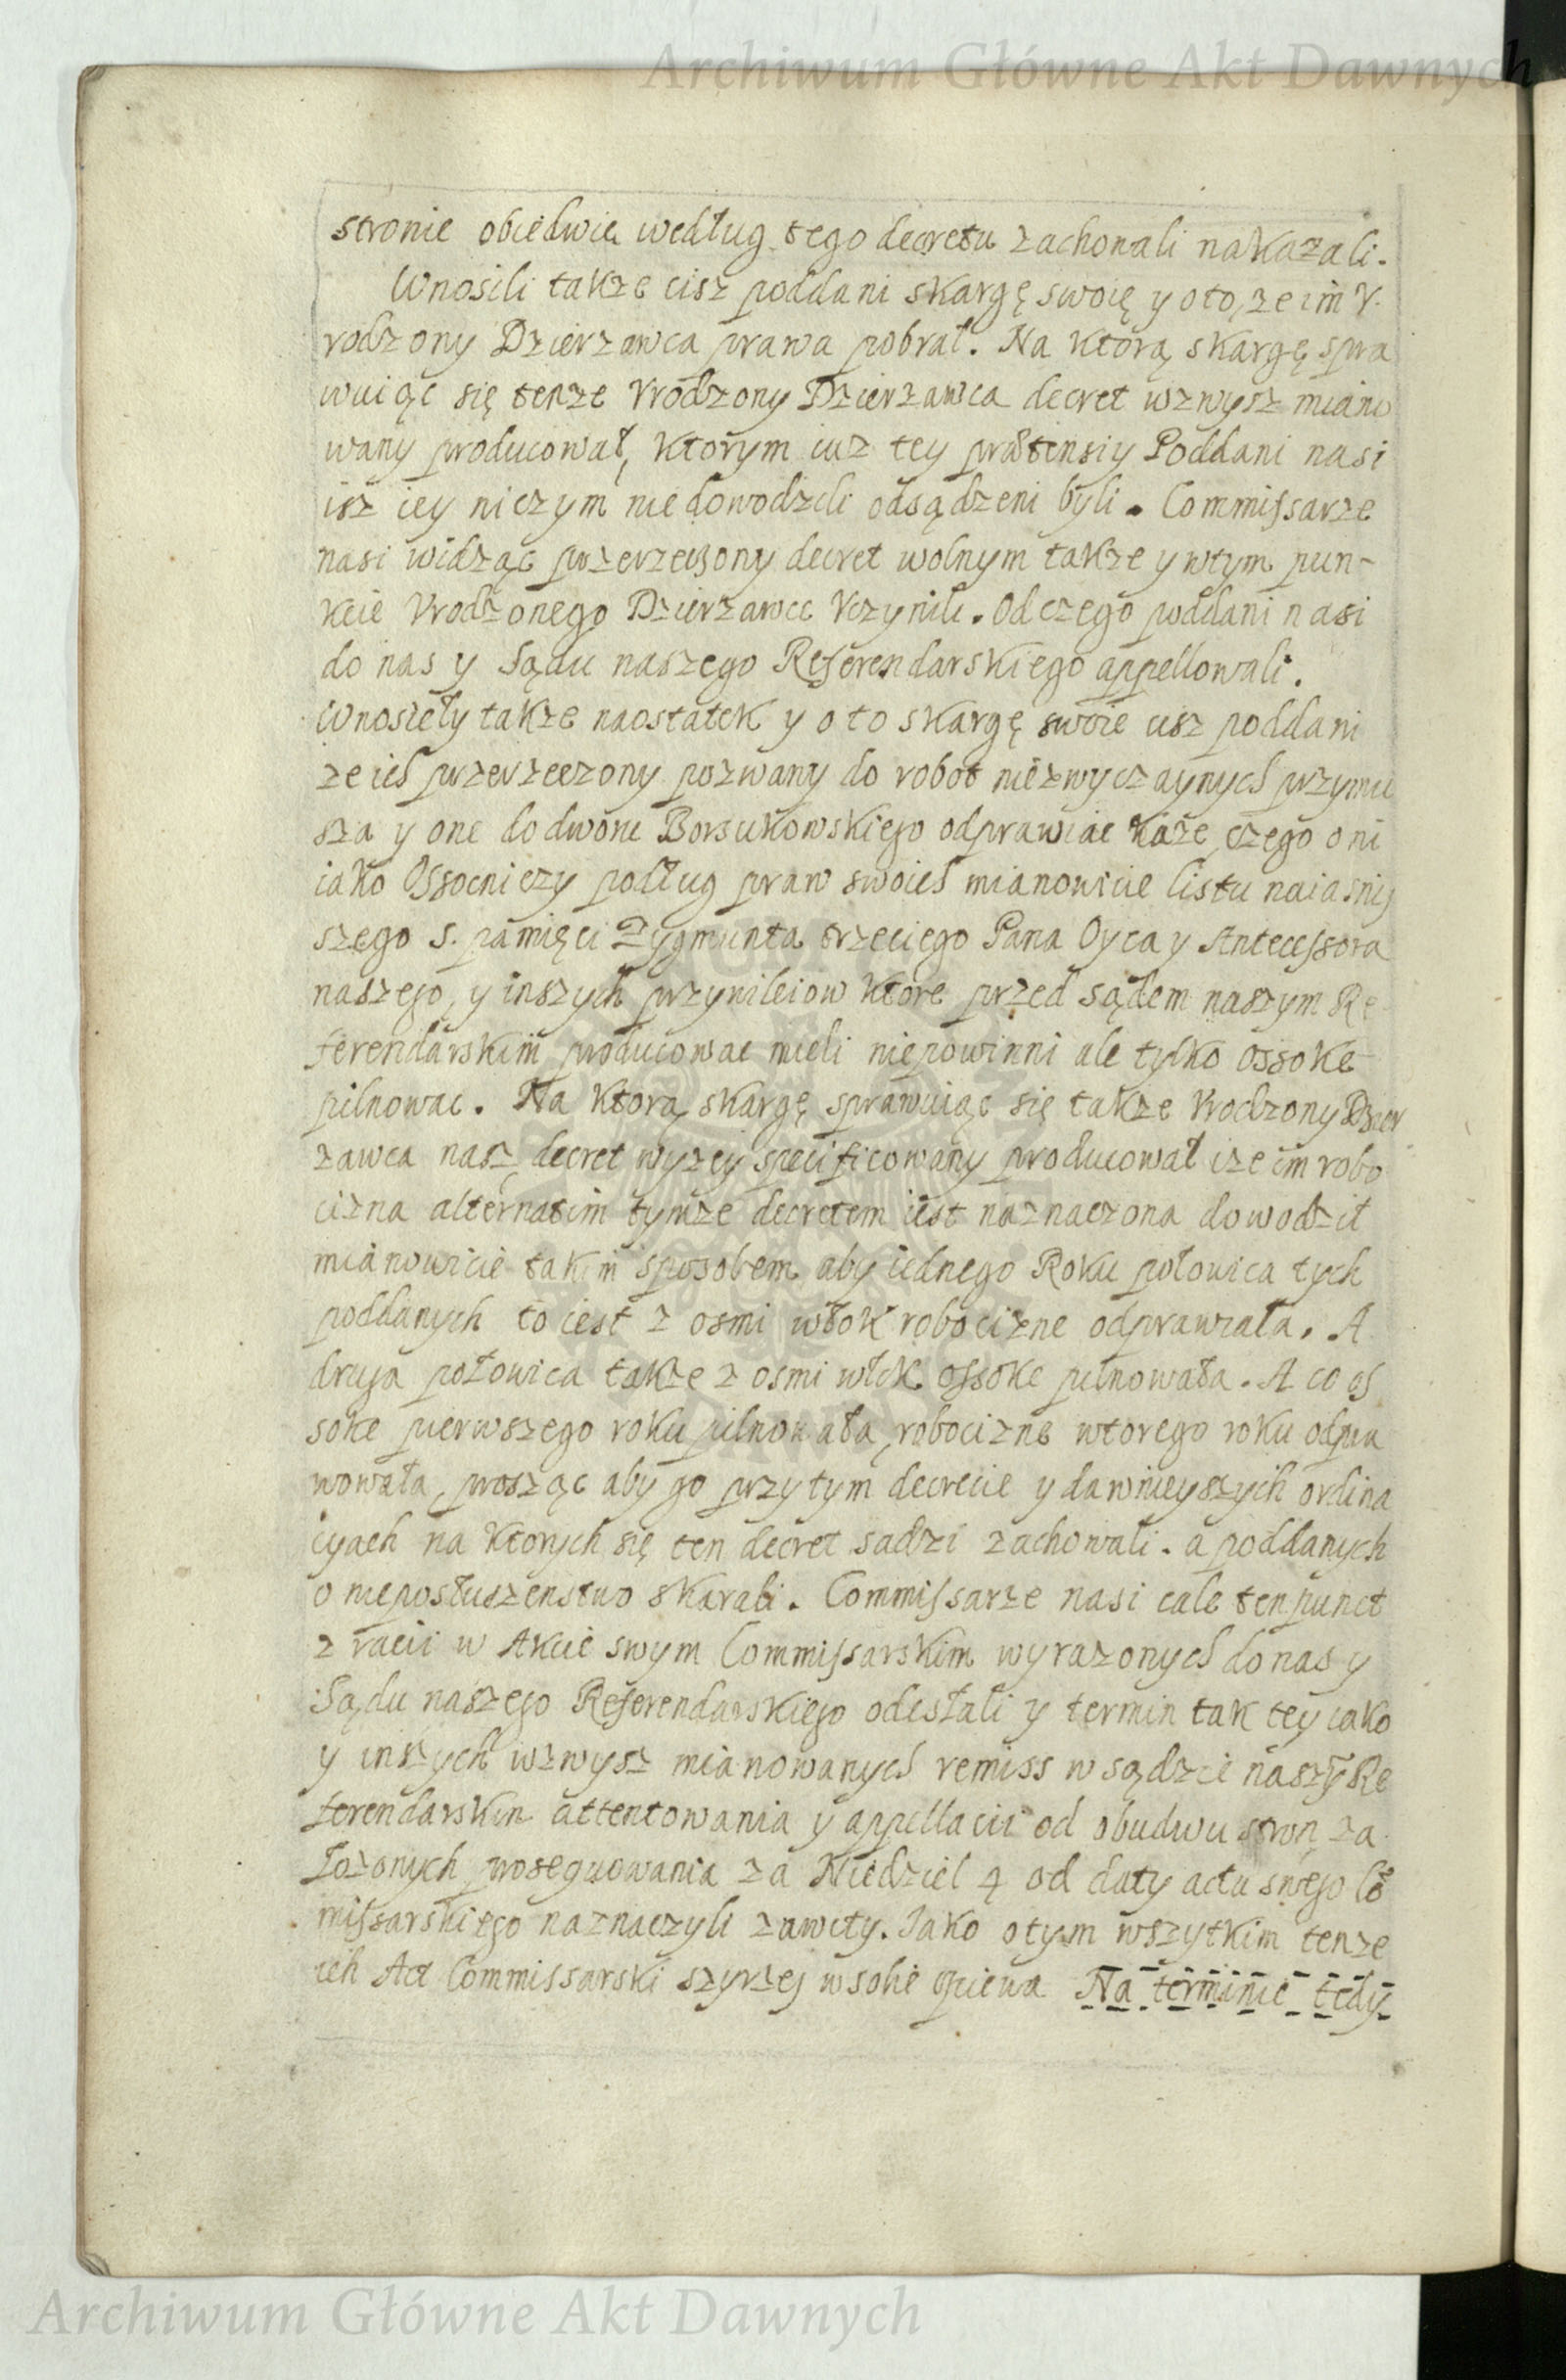 Archiwum Główne Akt Dawnych
stronie obiedwie według tego decretu zachowali nakazali.
Wnosili także cisz poddani skargę swoię y oto, że im V-
rodzony Dzierzawca prawa pobrał. Na ktorą skargę spra
wuiąc się tenze Vrodzony Dzierzawca decret wzwysz miano
wany producował, ktorym iuz tey prætensiy Poddani nasi
isz iey niczym nie dowodzili odsądzeni byli. Commissarze
nasi widząc przerzeczony decret wolnym także y wtym pun-
kcie Vrodzonego Dzierzawce Vczynili. Od czego poddani nasi
do nas y Sądu naszego Referendarskiego appellowali.
Wnosieły także naostatek y o to skargę swoie cisz poddani
ze ich przerzeczony pozwany do robot niezwyczaynych przymu
sza y one do dworu Borsukowskiego odprawiac kaze, czego oni
iako Ossocniczy podług praw swoich mianowicie listu naiasniy
szego s. pamięci Zygmunta trzeciego Pana Oyca y Antecessora
naszego, y inszych przywileiow ktore przed sądem naszym Re
ferendarskim producowac mieli niepowinni ale tylko ossoke
pilnowac. Na ktorą skargę sprawuiąc się takze Vrodzony Dzier
zawca nasz decret wyzey specificowany producował ize im robo
cizna alternatim tymze decretem iest naznaczona dowodził
mianowicie takim sposobem aby iednego Roku połowica tych
poddanych to iest z osmi włok robocizne odprawiała. A
druga połowica takze z osmi włok ossoke pilnowała. A co os
soke pierwszego roku pilnowała, robocizne wtorego roku odpra
wowała, prosząc aby go przy tym decrecie y dawnieyszych ordina
cyach na ktorych się ten decret sadzi zachowali. a poddanych
o nieposłuszenstwo skarali. Commissarze nasi cale ten punct
z racii w Akcie swym Commissarskim wyrazonych do nas y
Sądu naszego Referendarskiego odesłali y termin tak tey iako
y inszych wzwysz mianowanych remiss w sądzie naszỹ Re
ferendarskim attentowania y appellacii od obudwu stron za
łozonych prosequowania za Niedziel 4 od daty actu swego Cõ
missarskiego naznaczyli zawity. Iako o tym wszytkim tenze
ich Act Commissarski szyrzej w sobie opiewa Na terminie tedy
Archiwum Główne Akt Dawnych